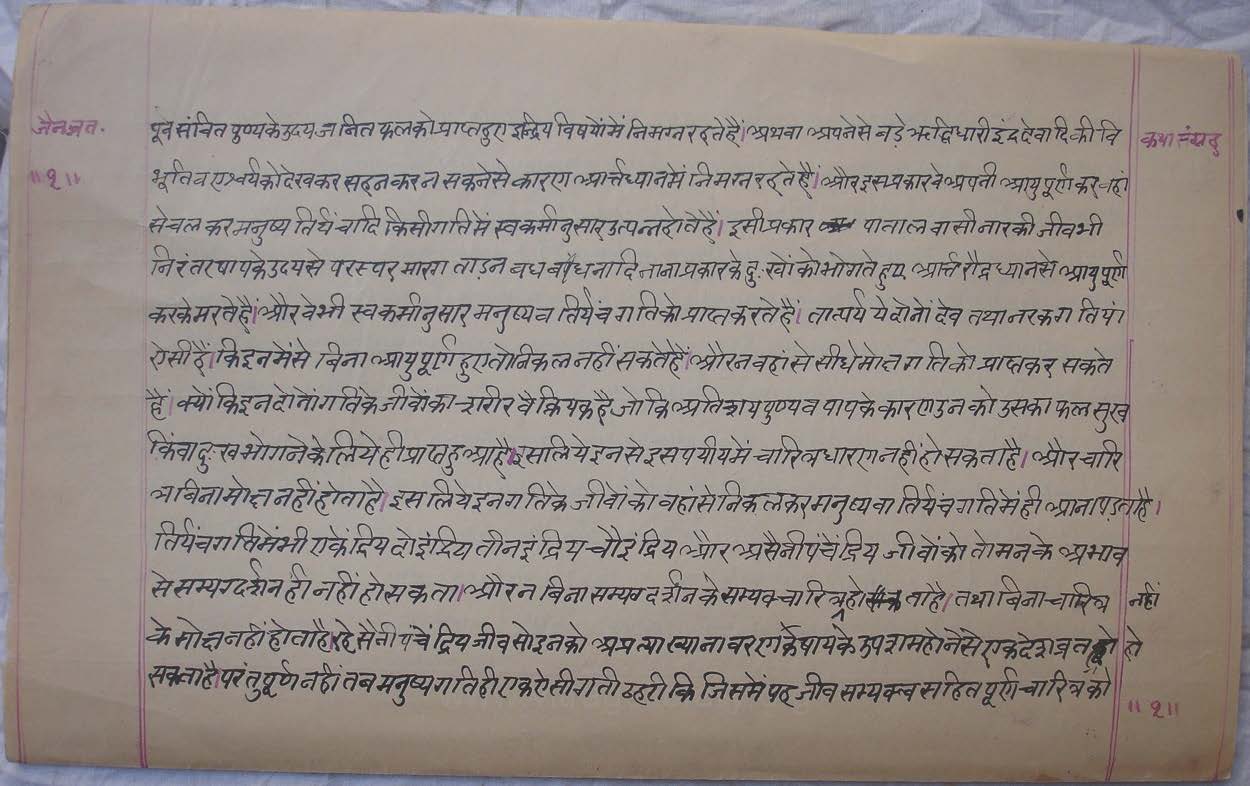 जैनव्रत.
॥२॥
कथा संग्रह
पूर्व संचित पुण्यके उदय जनित फलको प्राप्त हुए इन्द्रिय विषयोंमें निमग्न रहते हैं। अथवा अपनेसे बड़े ऋद्धिधारी इंद्र देवादि की वि
भूति व एश्वर्यको देखकर सहन कर न सकनेसे कारण आर्त्तध्यानमें निमग्न रहते हैं। और इसप्रकार वे अपनी आयु पूर्ण कर वहां
से चल कर मनुष्य तिर्यंचादि किसी गतिमें स्वकर्मानुसार उत्पन्न होते हैं। इसी प्रकार पाताल वासी नारकी जीव भी
निरंतर पापके उदयसे परस्पर मारण ताडन वध बंधनादि नाना प्रकारके दुःखोंको भोगते हुए आर्त्त रौद्र ध्यानसे आयु पूर्ण
करके मरते हैं। और वे भी स्वकर्मानुसार मनुष्य व तिर्यंच गतिको प्राप्त करते हैं। तात्पर्य ये दोनों देव तथा नरक गतियां
ऐसी हैं। कि इनमेंसे बिना आयु पूर्ण हुए तो निकल नहीं सकते हैं। और न वहां से सीधे मोक्ष गति को प्राप्त कर सकते
हैं। क्यों कि इन दोनों गतिके जीवोंका शरीर वैक्रियक है जो कि अतिशय पुण्य व पापके कारण उनको उसका फल सुख
किंवा दुःख भोगनेके लिये ही प्राप्त हुआ है। इसलिये इनसे इस पर्यायमें चारित्र धारण नहीं हो सकता है। और चारि
त्र बिना मोक्ष नहीं होता है। इसलिये इन गतिके जीवोंको वहांसे निकलकर मनुष्य वा तिर्यंच गतिमें ही आना पड़ता है।
तिर्यंच गतिमें भी एकेंद्रिय दोइंद्रिय तीनइंद्रिय चौइंद्रिय और असैनी पंचेंद्रिय जीवोंको तो मनके अभाव
से सम्यग्दर्शन ही नहीं हो सकता। और न बिना सम्यग्दर्शनके सम्यक्चारित्र हो ता है। तथा बिना चारित्र नहीं
के मोक्ष नहीं होता है। रहे सैनी पंचेंद्रिय जीव सो इनको अप्रत्याख्यानावरण कषायके उपशम होनेसे एकदेश व्रत हो
सकता है परंतु पूर्ण नहीं तब मनुष्य गति ही एक ऐसी गती ठहरी कि जिसमें यह जीव सम्यक्त्व सहित पूर्ण चारित्र को
॥२॥